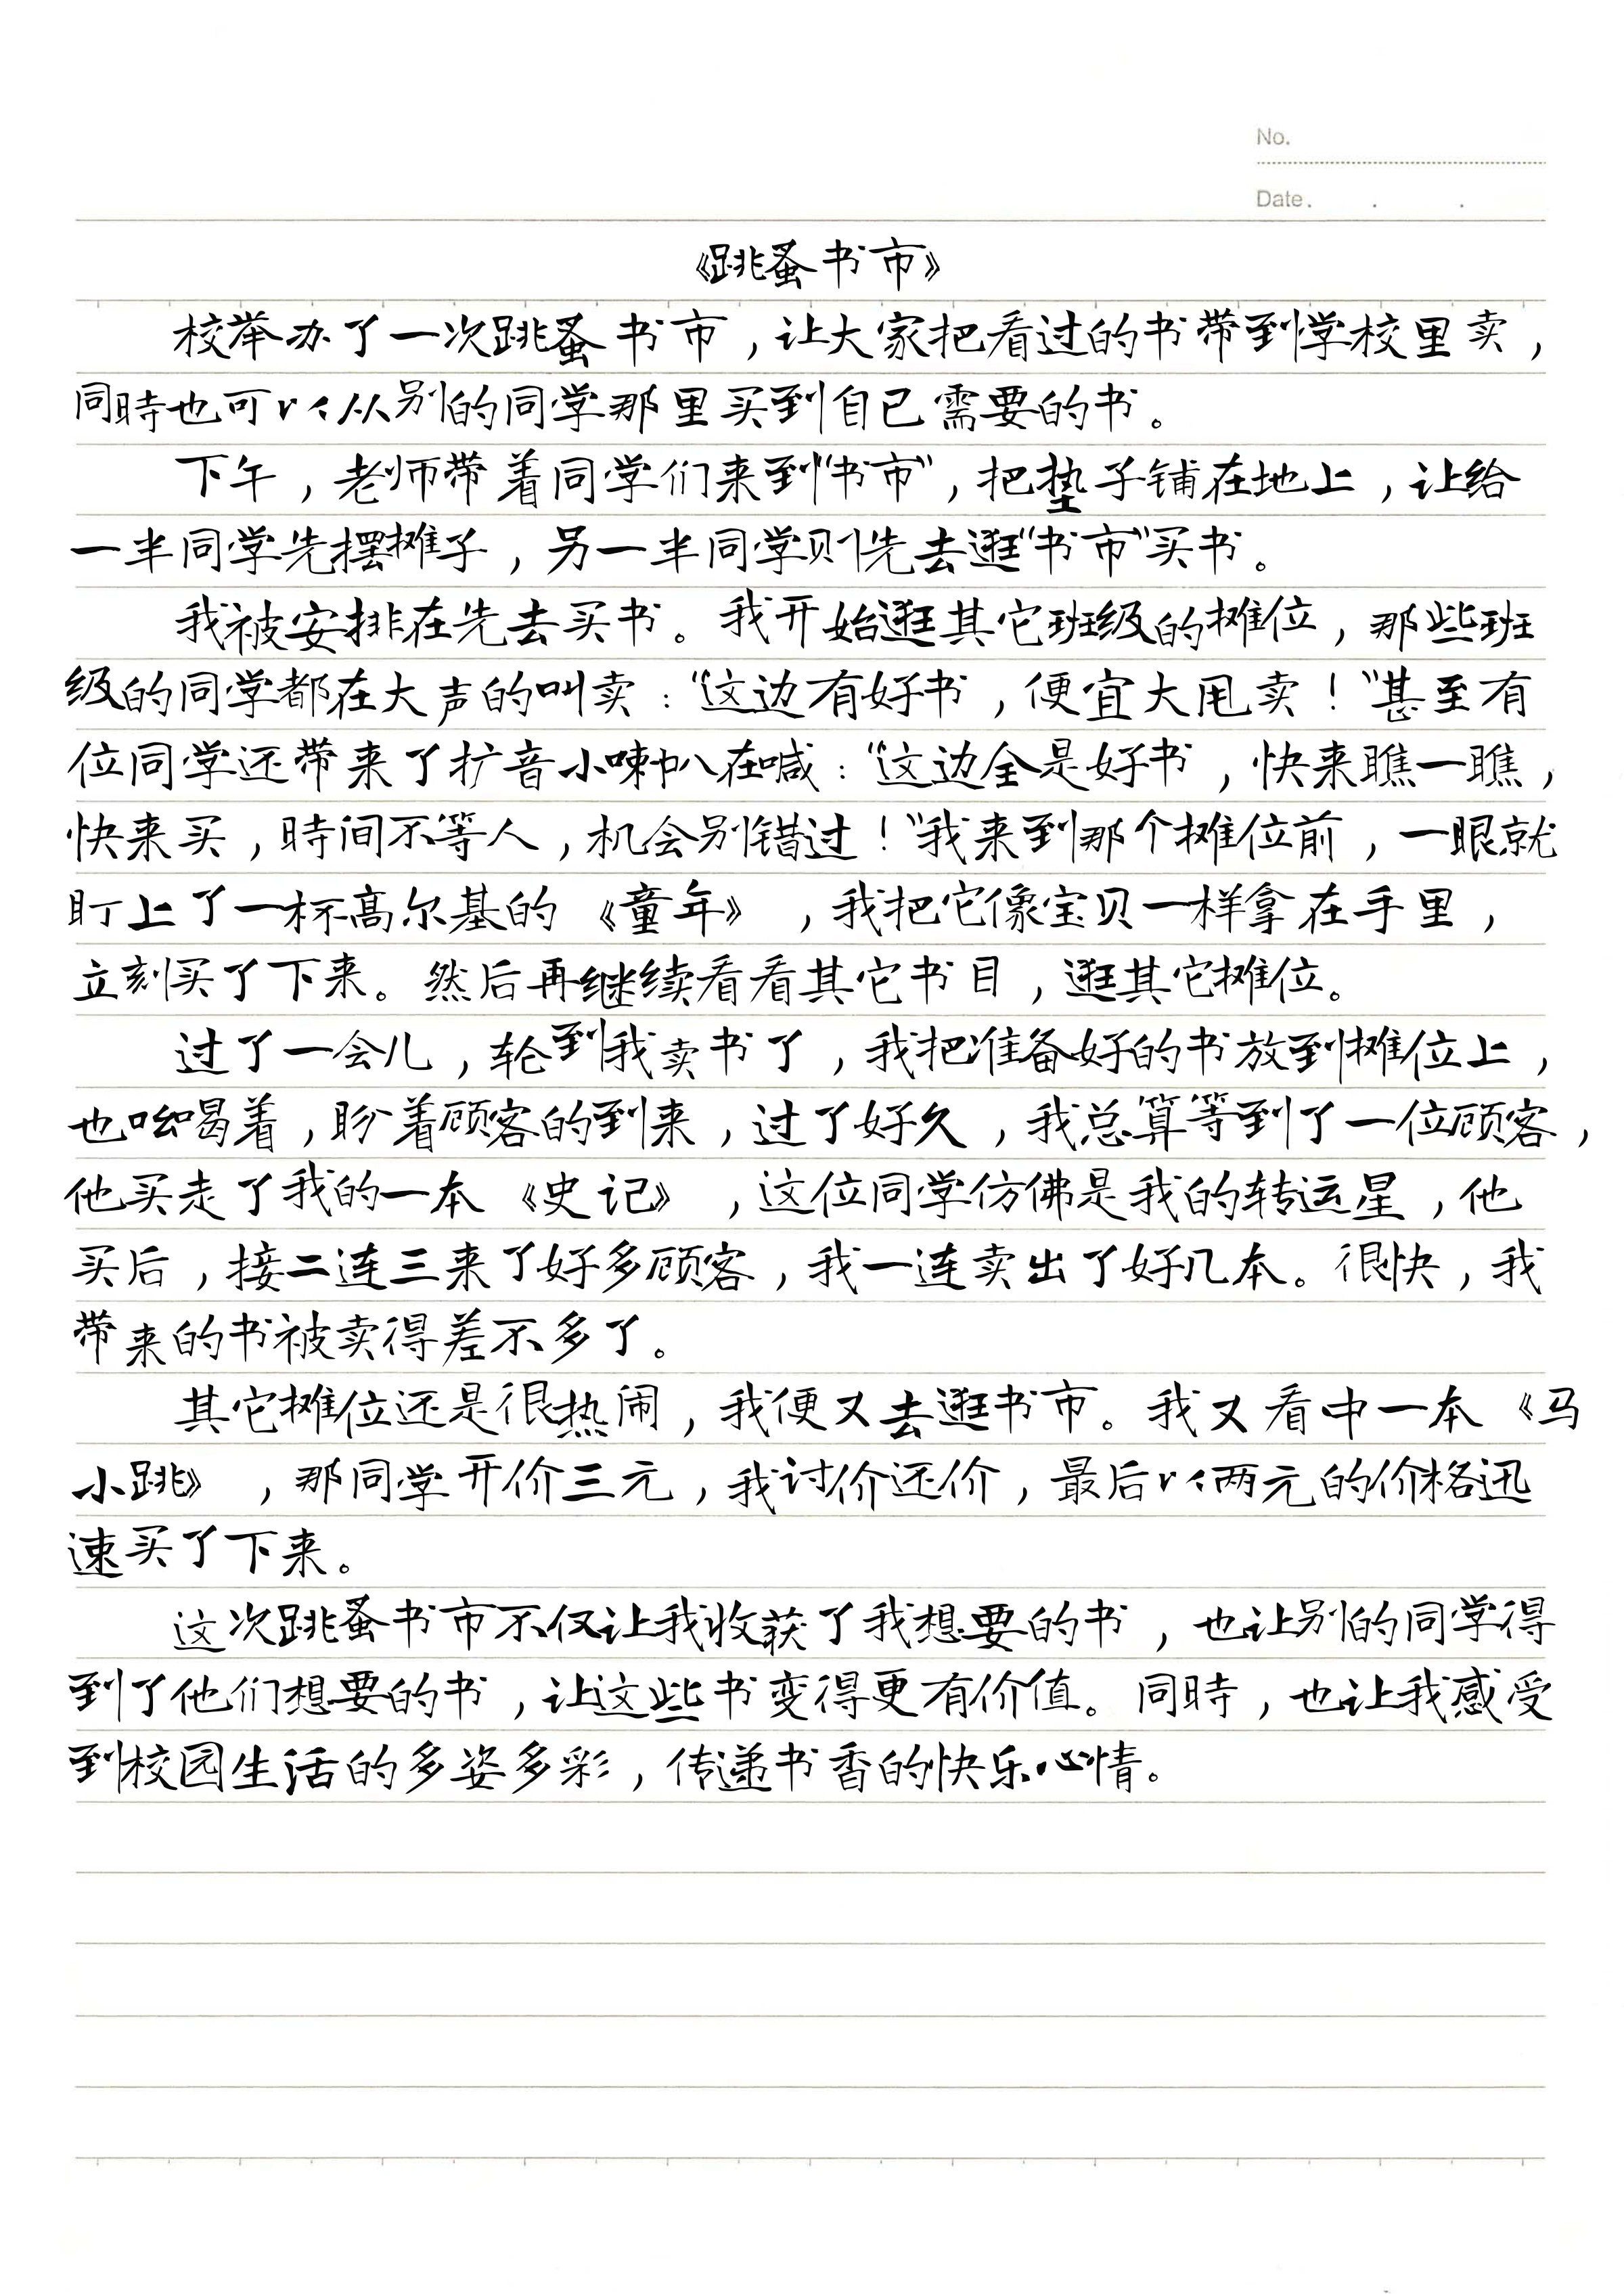 No.
Date.
《跳蚤书市》
校举办了一次跳蚤书市，让大家把看过的书带到学校里卖，
同時也可以从别的同学那里买到自己需要的书。
下午，老师带着同学们来到“书市”，把垫子铺在地上，让给
一半同学先摆摊子，另一半同学则先去逛“书市”买书。
我被安排在先去买书。我开始逛其它班级的摊位，那些班
级的同学都在大声的叫卖：“这边有好书，便宜大甩卖！”甚至有
位同学还带来了扩音小喇叭在喊：“这边全是好书，快来瞧一瞧，
快来买，時间不等人，机会别错过！”我来到那个摊位前，一眼就
盯上了一杯高尔基的《童年》，我把它像宝贝一样拿在手里，
立刻买了下来。然后再继续看看其它书目，逛其它摊位。
过了一会儿，轮到我卖书了，我把准备好的书放到摊位上，
也吆喝着，盼着顾客的到来，过了好久，我总算等到了一位顾客，
他买走了我的一本《史记》，这位同学仿佛是我的转运星，他
买后，接二连三来了好多顾客，我一连卖出了好几本。很快，我
带来的书被卖得差不多了。
其它摊位还是很热闹，我便又去逛书市。我又看中一本《马
小跳》，那同学开价三元，我讨价还价，最后以两元的价格迅
速买了下来。
这次跳蚤书市不仅让我收获了我想要的书，也让别的同学得
到了他们想要的书，让这些书变得更有价值。同時，也让我感受
到校园生活的多姿多彩，传递书香的快乐心情。